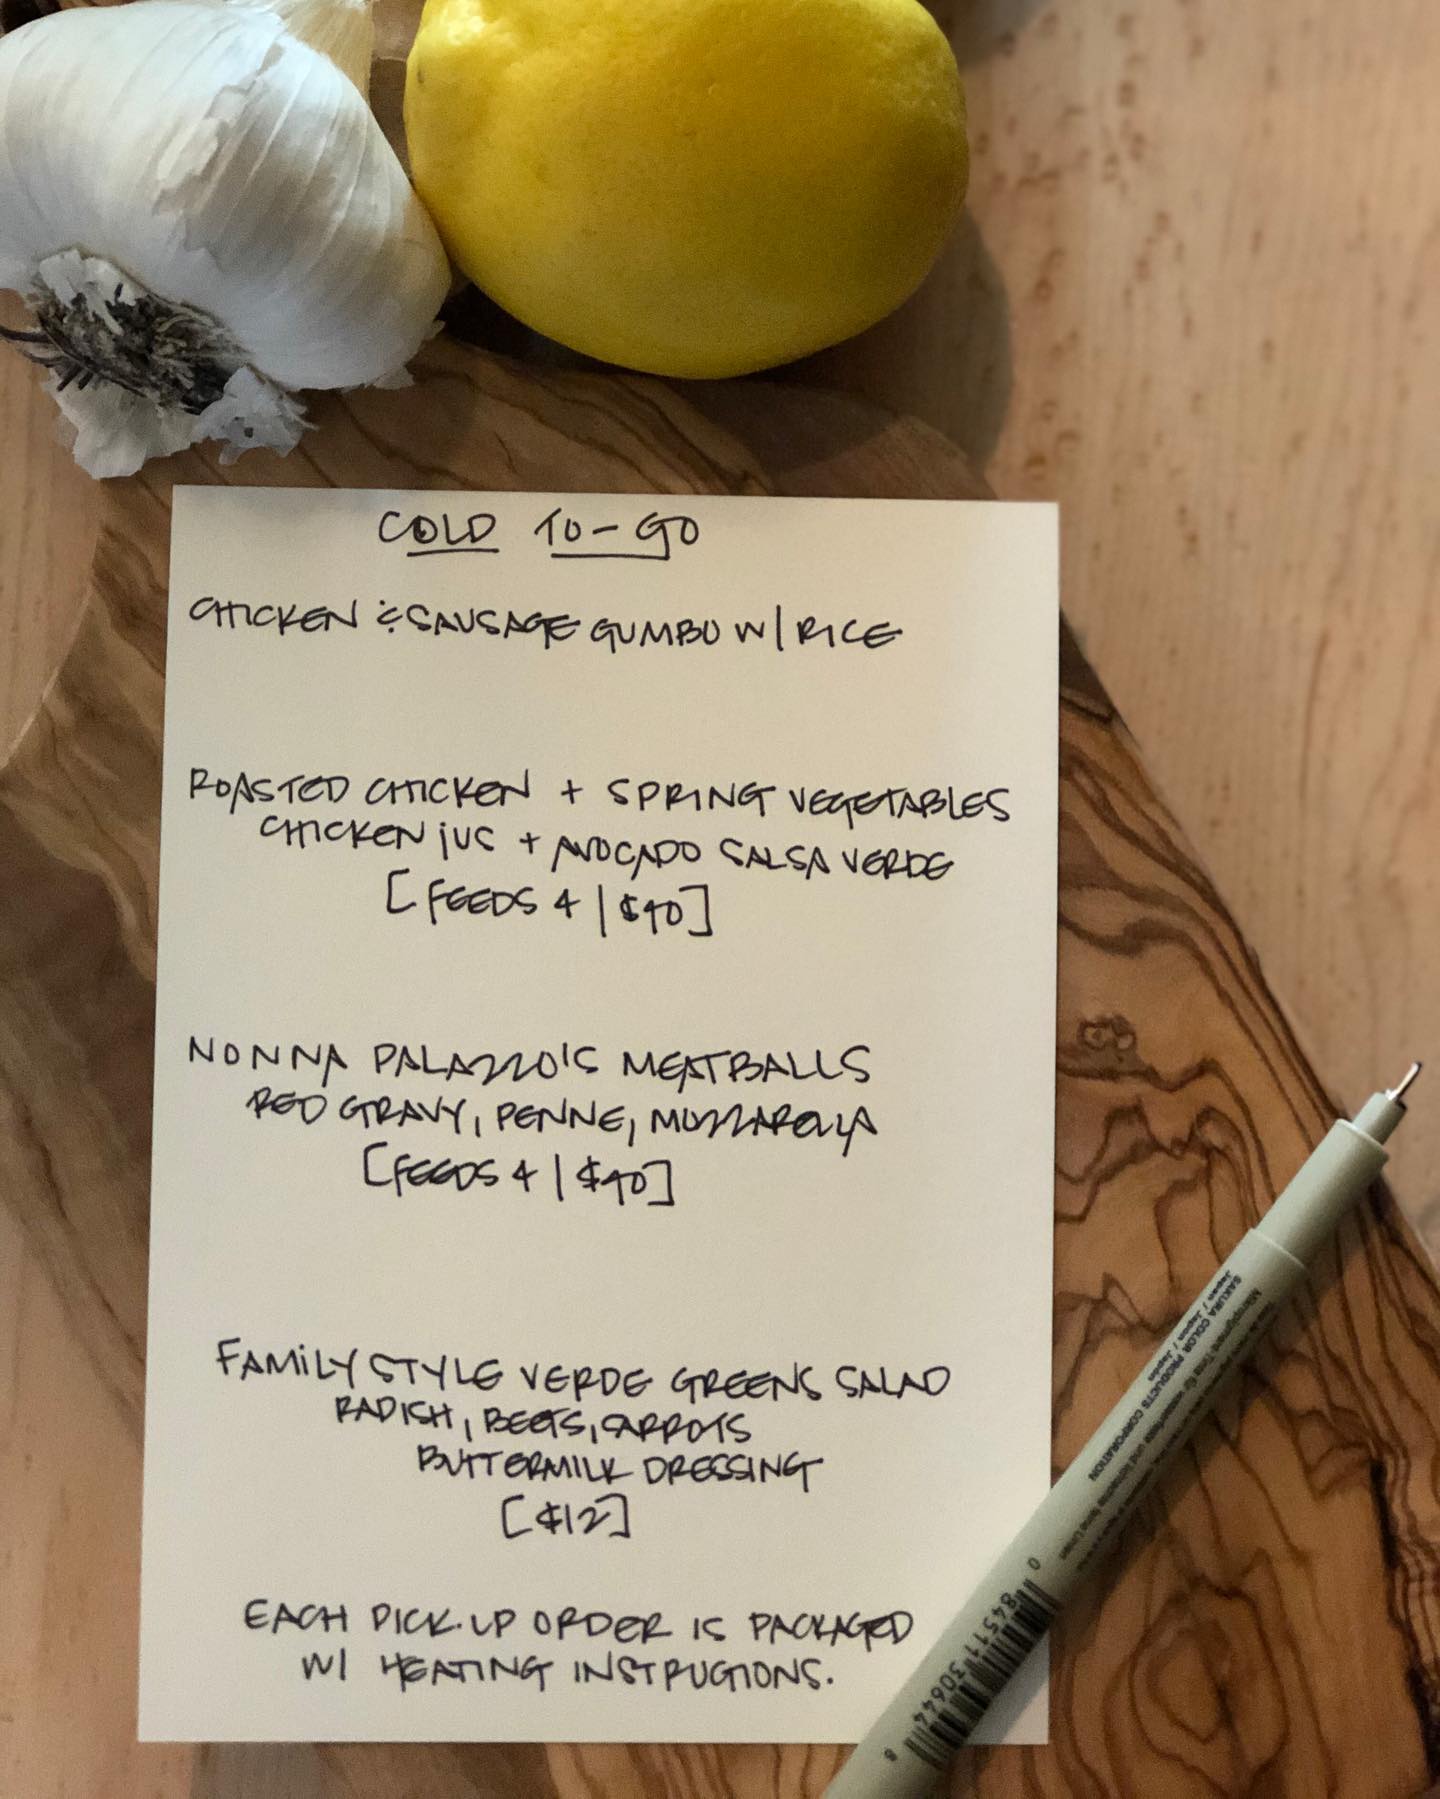 COLD TO-GO
CHICKEN & SAUSAGE GUMBO W/ RICE
ROASTED CHICKEN + SPRING VEGETABLES
CHICKEN JUS + AVOCADO SALSA VERDE
[FEEDS 4 | $40]
NONNA PALAZZO'S MEATBALLS
RED GRAVY, PENNE, MOZZARELLA
[FEEDS 4 | $40]
FAMILY STYLE VERDE GREENS SALAD
RADISH, BEETS, CARROTS
BUTTERMILK DRESSING
[$12]
EACH PICK-UP ORDER IS PACKAGED
W/ HEATING INSTRUCTIONS.
SAKURA COLOR PRODUCTS CORPORATION
Japan / Japon
0 84511 30644 8